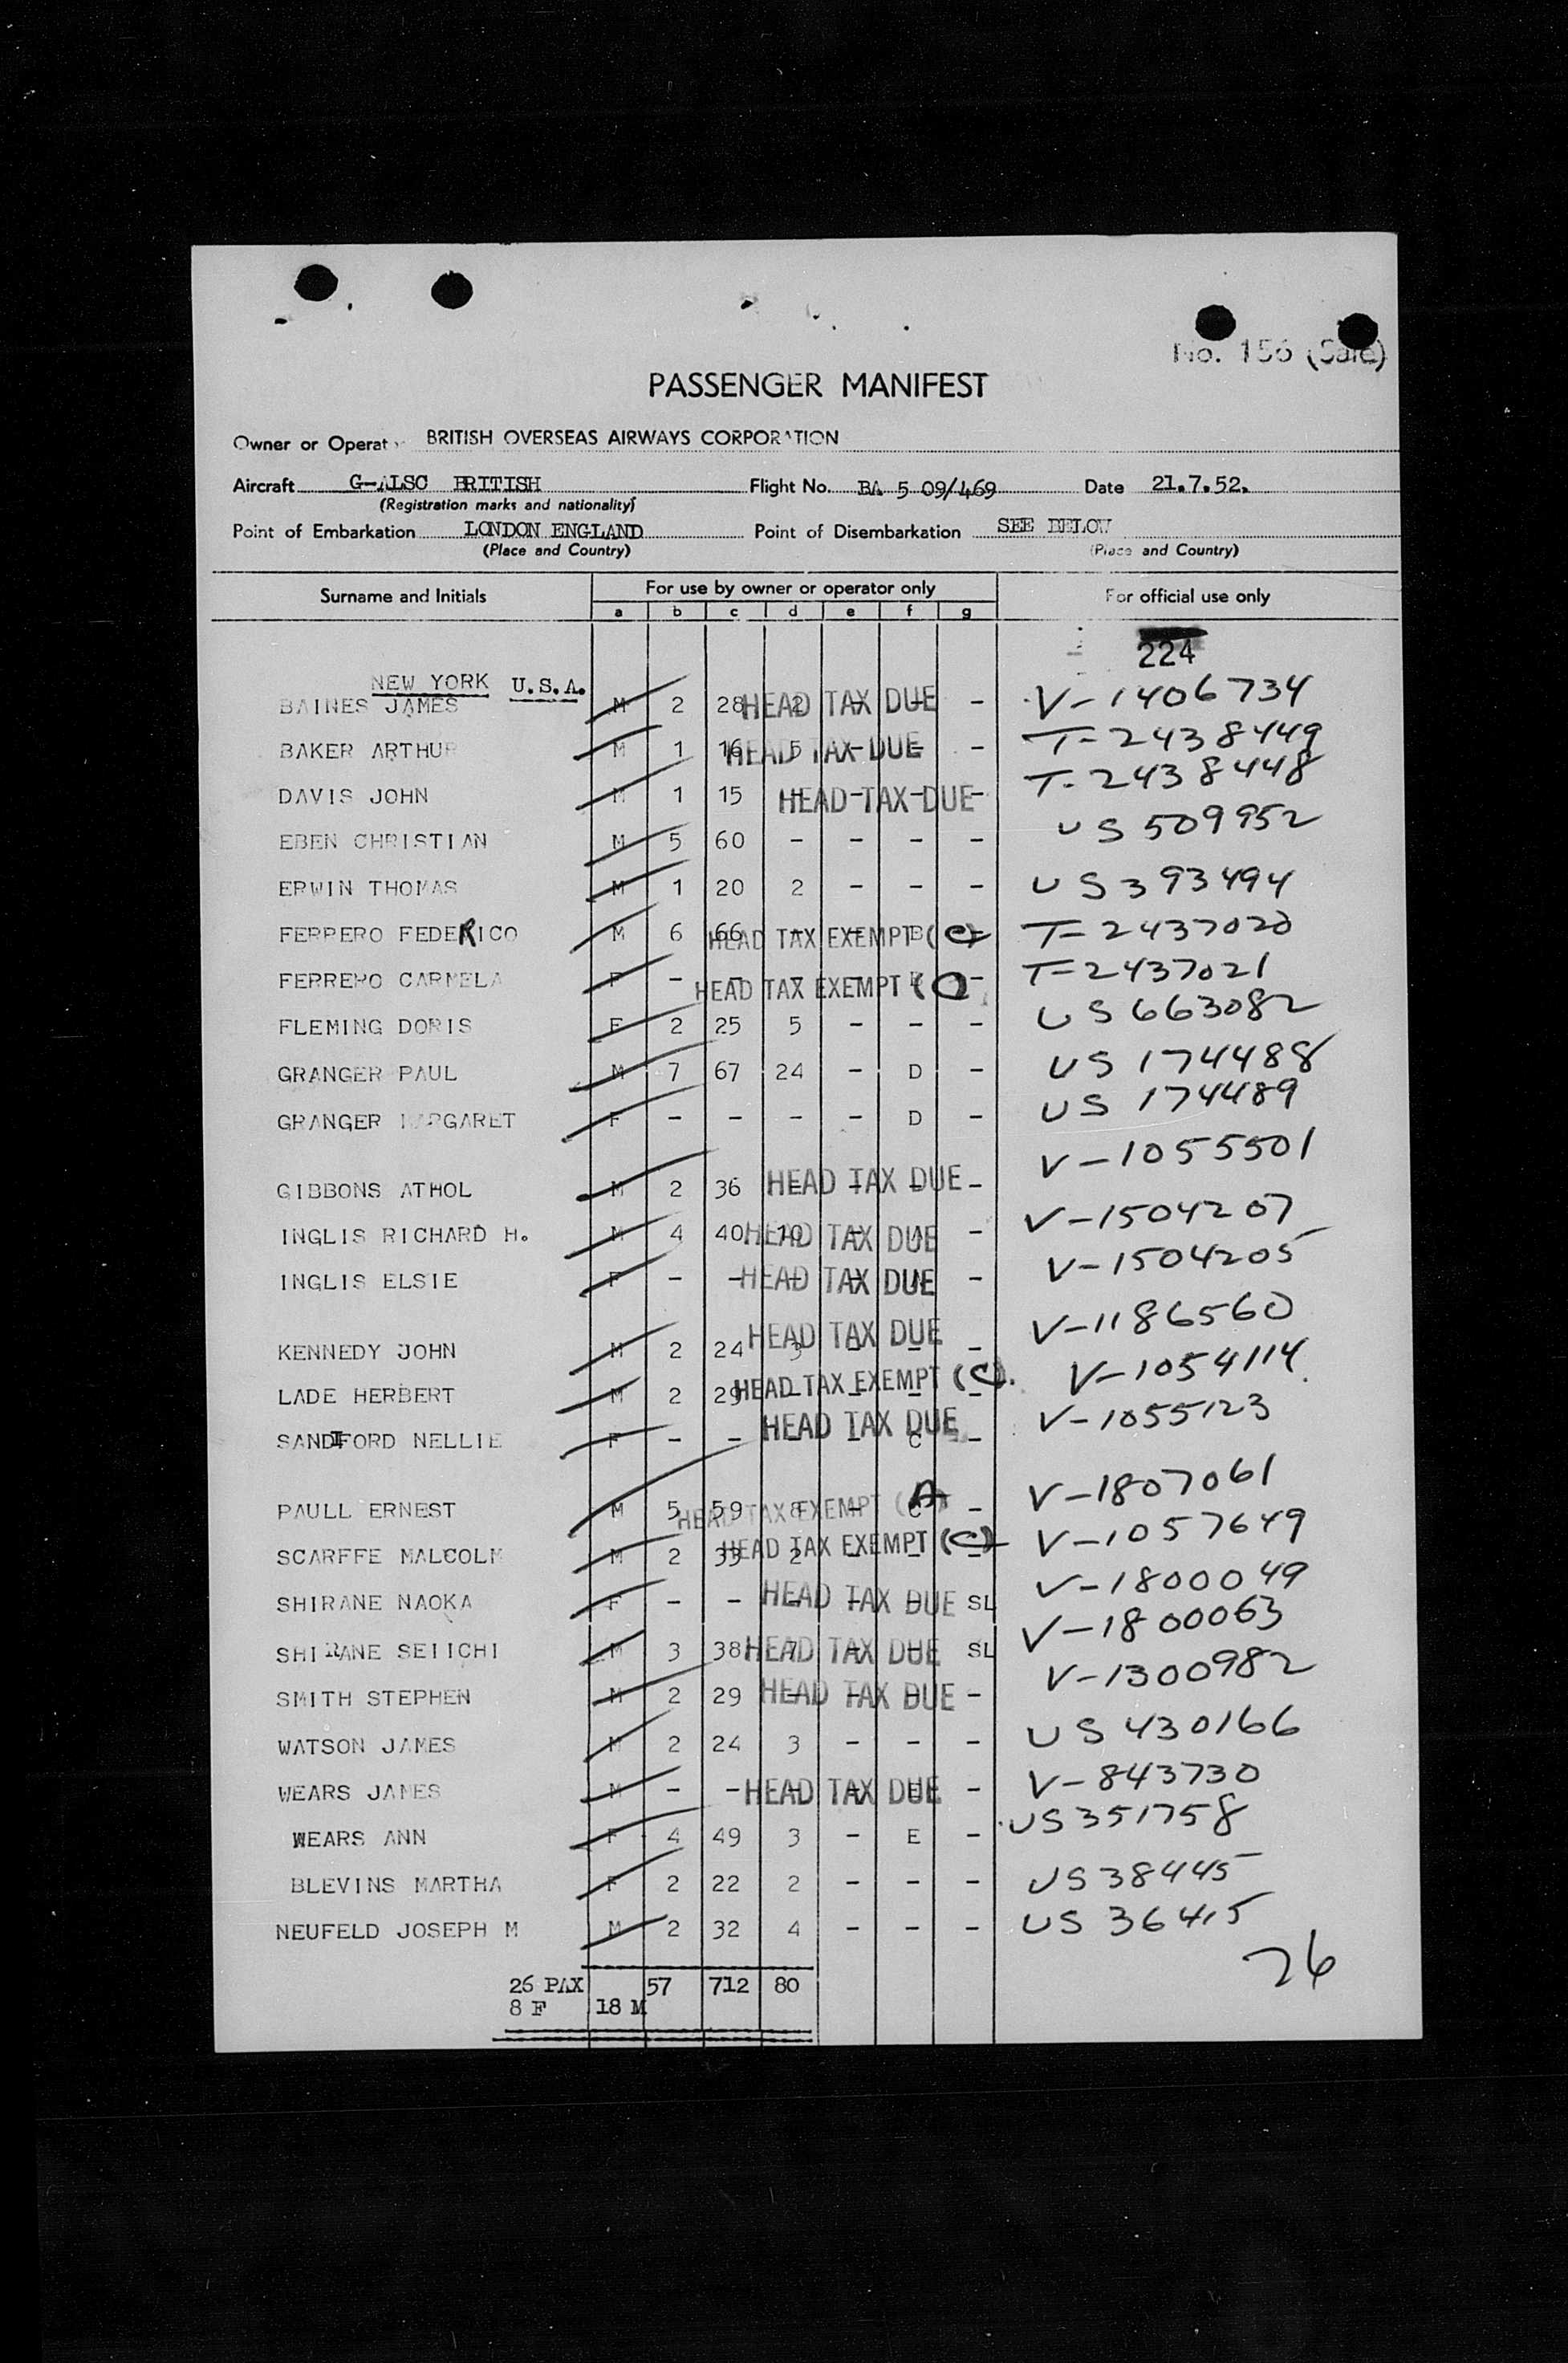 No. 156 (Sale)
PASSENGER MANIFEST
Owner or Operat BRITISH OVERSEAS AIRWAYS CORPORATION
Aircraft G-ALSC BRITISH Flight No. BA 5 09/469 Date 21.7.52.
(Registration marks and nationality)
Point of Embarkation LONDON ENGLAND Point of Disembarkation SEE BELOW
(Place and Country) (Place and Country)
Surname and Initials For use by owner or operator only For official use only
a b c d e f g
224
NEW YORK U.S.A.
BAINES JAMES M 2 28 2 HEAD TAX DUE - V-1406734
BAKER ARTHUR M 1 16 5 HEAD TAX DUE - T-2438449
DAVIS JOHN M 1 15 HEAD TAX DUE - T-2438448
EBEN CHRISTIAN M 5 60 - - - - US 509952
ERWIN THOMAS M 1 20 2 - - - US 393494
FERRERO FEDERICO M 6 66 - - B HEAD TAX EXEMPT (C) T-2437020
FERRERO CARMELA F - - - - HEAD TAX EXEMPT (C) - T-2437021
FLEMING DORIS F 2 25 5 - - - US 663082
GRANGER PAUL M 7 67 24 - D - US 174488
GRANGER MARGARET F - - - - D - US 174489
GIBBONS ATHOL M 2 36 - - - HEAD TAX DUE - V-1055501
INGLIS RICHARD H. M 4 40 10 - A HEAD TAX DUE - V-1504207
INGLIS ELSIE F - - - - A HEAD TAX DUE - V-1504205
KENNEDY JOHN M 2 24 3 - - HEAD TAX DUE - V-1186560
LADE HERBERT M 2 29 - - - HEAD TAX EXEMPT (C). - V-1054114
SANDIFORD NELLIE F - - - - C HEAD TAX DUE - V-1055123
PAULL ERNEST M 5 59 8 - C HEAD TAX EXEMPT (A) - V-1807061
SCARFFE MALCOLM M 2 33 2 - - HEAD TAX EXEMPT (C) - V-1057649
SHIRANE NAOKA F - - - - - HEAD TAX DUE SL V-1800049
SHIRANE SEIICHI M 3 38 7 - - HEAD TAX DUE SL V-1800063
SMITH STEPHEN M 2 29 - - - HEAD TAX DUE - V-1300982
WATSON JAMES M 2 24 3 - - - US 430166
WEARS JAMES M - - - - E HEAD TAX DUE - V-843730
WEARS ANN F 4 49 3 - E - US 351758
BLEVINS MARTHA F 2 22 2 - - - US 38445
NEUFELD JOSEPH M M 2 32 4 - - - US 36415
26 PAX 57 712 80 26
8 F 18 M